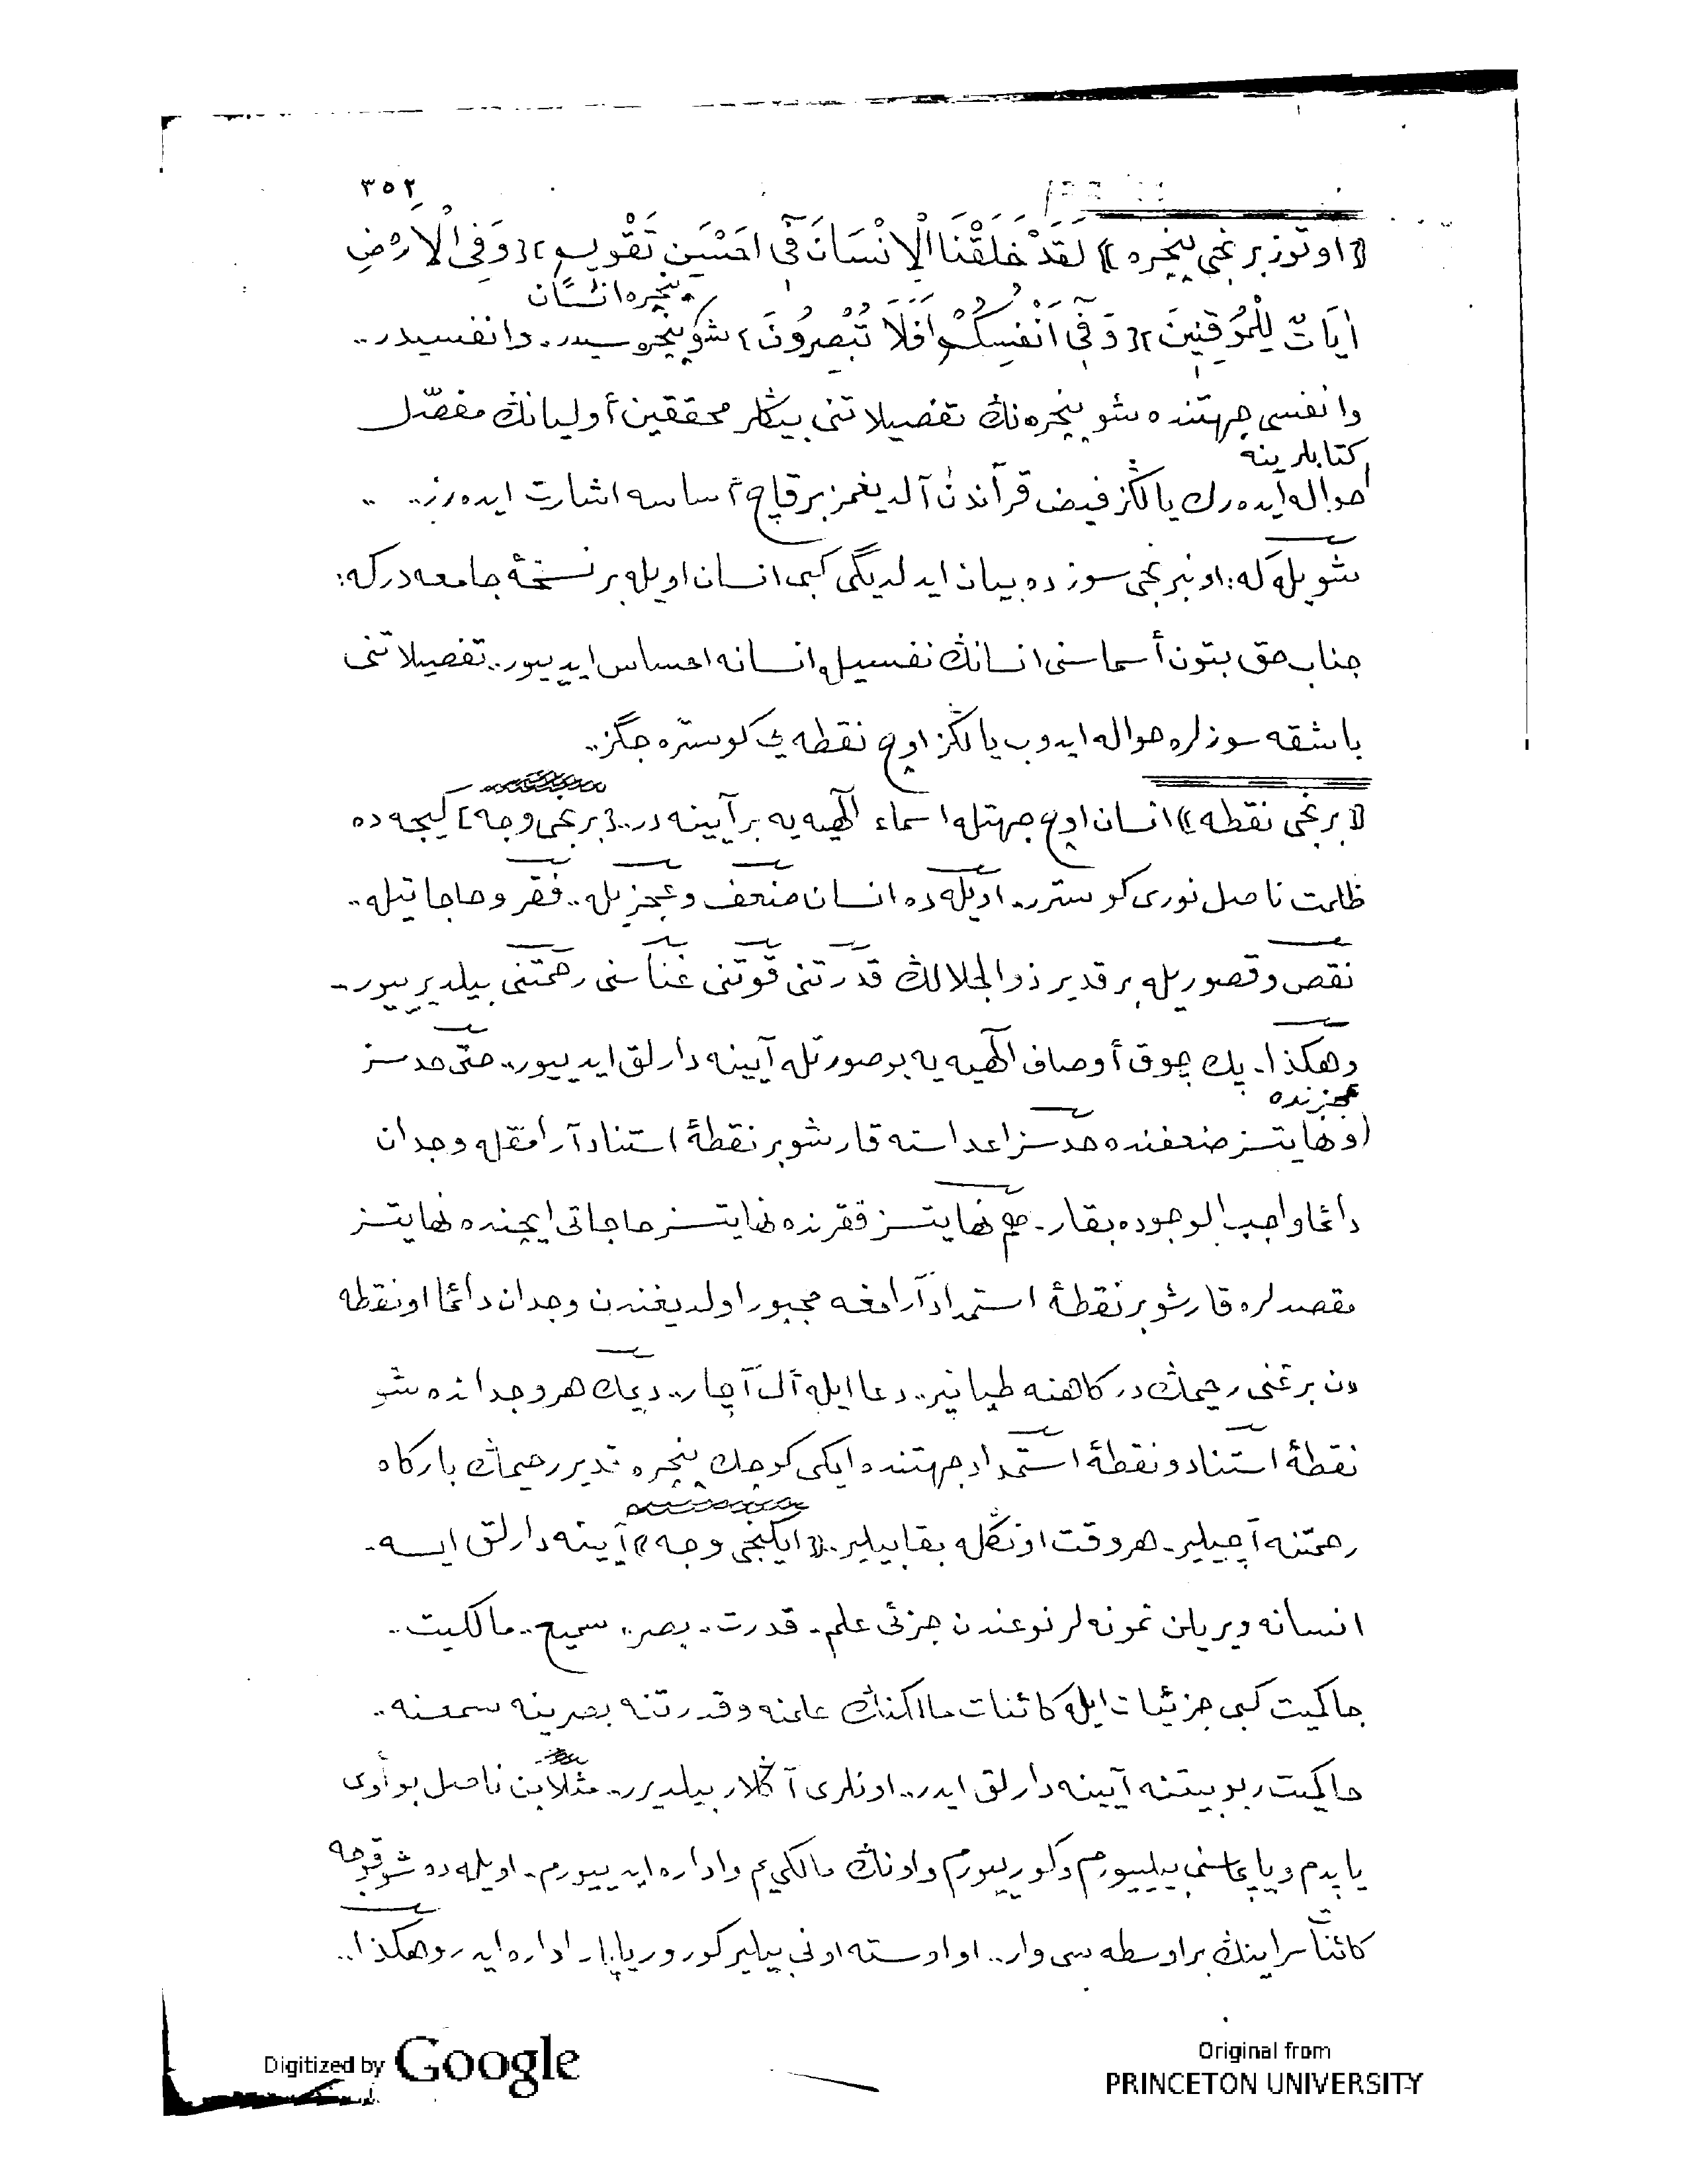 ٣٥٢
﴿ اوتوز برنجی پنجره ﴾ لَقَدْ خَلَقْنَا الْاِنْسَانَ فٓى اَحْسَنِ تَقْوِيمٍ ﴾﴿ وَفِى الْاَرْضِ
پنجره انسان
اٰيَاتٌ لِلْمُوقِنِينَ ﴾﴿ وَفٓى اَنْفُسِكُمْ اَفَلَا تُبْصِرُونَ ﴾ شو پنجره سیدر. وانفسیدر..
وانفسی جهتنده شو پنجره‌نڭ تفصیلاتنی بیڭلر محققین أولیانڭ مفصّل
كتابلرینه
حواله ایده‌رك یالڭز فیض قرآندن آلدیغمز برقاچ أساسه اشارت ایده‌رز.. ..
شویله كه: اونبرنجی سوزده بیان ایدلدیگی كبی انسان اویله بر نسخهٔ جامعه‌در كه:
جناب حق بتون أسماسنی انسانڭ نفسیله انسانه احساس ایدییور.. تفصیلاتنی
باشقه سوزلره حواله ایدوب یالڭز اوچ نقطه‌یی كوستره‌جگز..
﴿ برنجی نقطه ﴾ انسان اوچ جهتله اسماء الٓهیه‌یه بر آیینه‌در.. ﴿ برنجی وجه ﴾ كیجه‌ده
ظلمت ناصل نوری كوسترر.. اویله‌ده انسان ضعف وعجزیله.. فقر وحاجاتیله..
نقص وقصوریله بر قدیر ذوالجلالڭ قدرتنی قوّتنی غناسنی رحمتنی بیلدیرییور..
وهكذا.. پك چوق أوصاف الٓهیه‌یه بو صورتله آیینه‌دارلق ایدییور.. حتّی حدسز
عجزنده
ونهایتسز ضعفنده حدسز اعداسنه قارشو بر نقطهٔ استناد آرامقله وجدان
دائما واجب الوجوده بقار.. هم نهایتسز فقرنده نهایتسز حاجاتی ایچنده نهایتسز
مقصدلره قارشو بر نقطهٔ استمداد آرامغه مجبور اولدیغندن وجدان دائما او نقطه
دن بر غنی رحیمڭ درگاهنه طیانیر.. دعا ایله أل آچار.. دیمك هر وجدانده شو
نقطهٔ استناد ونقطهٔ استمداد جهتنده ایكی كوچك پنجره قدیر رحیمڭ بارگاه
رحمتنه آچیلیر.. هروقت اونڭله بقابیلیر.. ﴿ ایكنجی وجه ﴾ آیینه‌دارلق ایسه..
انسانه ویریلن نمونه‌لر نوعندن جزئی علم.. قدرت.. بصر.. سمیع.. مالكیت..
حاكمیت كبی جزئیات ایله كائنات مالكنڭ علمنه وقدرتنه بصرینه سمعنه..
حاكمیت ربوبیتنه آیینه‌دارلق ایدر.. اونلری آڭلار بیلدیرر.. مثلا بن ناصل بو أوی
یاپدم ویاپماسنی بیلییورم وكورییورم واونڭ مالكی‌یم واداره ایدییورم.. اویله‌ده شو قوجه
كائنات سراینڭ بر اوسطه‌سی وار.. او اوسته اونی بیلیر كورور یاپار اداره ایدر وهكذا..
Digitized by Google
Original from
PRINCETON UNIVERSITY